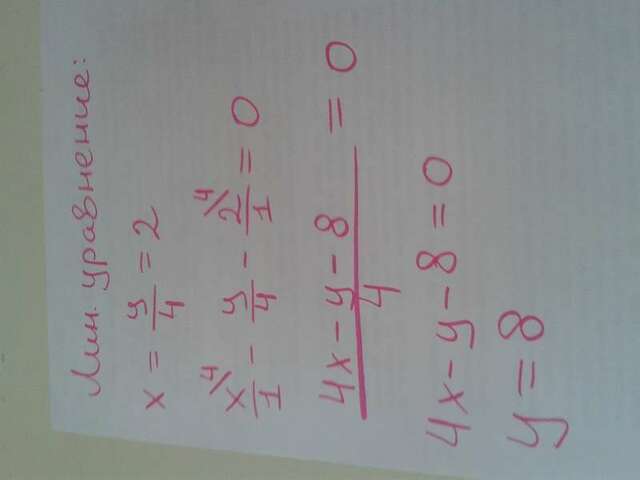 Лин. уравнение:
x = y/4 = 2
x/1 - y/4 - 2/1 = 0
4 4
4x - y - 8 / 4 = 0
4x - y - 8 = 0
y = 8